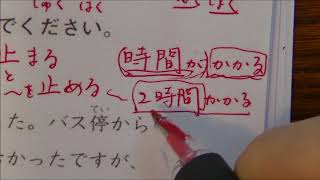 しゅく はく
でください。
止まる 時間がかかる
と
〜を止める 〜2時間かかる
てい
た。バス停から
かったですが、